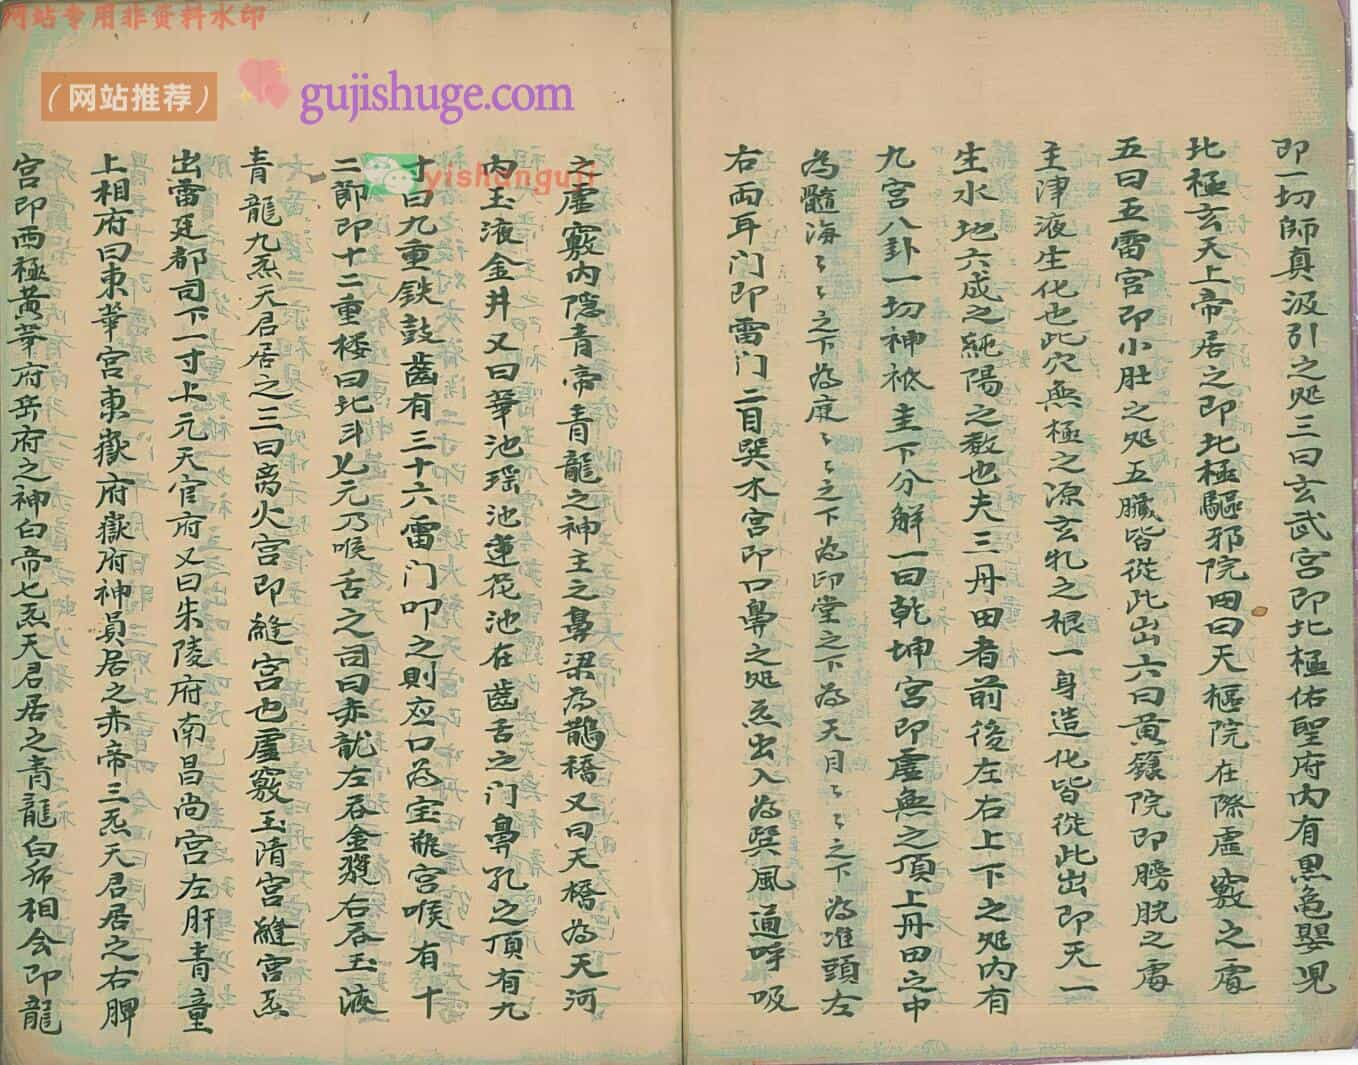 网站专用非资料水印
（网站推荐）
gujishuge.com
yishanguji
即一切師真汲引之处三曰玄武宫即北極佑聖府内有黑龜嬰児
北極玄天上帝居之即北極驅邪院四曰天樞院在際虚竅之處
五曰五雷宫即小肚之处五臓皆從此出六曰黄籙院即膀胱之處
主津液生化也此穴無極之源玄牝之根一身造化皆從此出即天一
生水地六成之純陽之数也夫三丹田者前後左右上下之处内有
九宫八卦一切神祇圭下分解一曰乾坤宫即虚無之頂上丹田之中
為髓海〻〻之下為庭〻〻之下為印堂之下為天月〻〻之下為准頭左
右両耳门即雷门二目巽木宫即口鼻之处炁出入為巽風通呼吸
之虚竅内隐青帝青龍之神主之鼻梁為鵲橋又曰天橋為天河
内玉液金井又曰華池瑶池蓮花池在齒舌之门鼻孔之頂有九
寸曰九重鉄鼓齒有三十六雷门叩之則应口為宝瓶宫喉有十
二節即十二重楼曰北斗九元乃喉舌之司曰赤龙左吞金漿右吞玉液
青龍九炁天君居之三曰离火宫即縫宫也虚竅玉清宫縫宫炁
出雷廷都司下一寸上元天官府又曰朱陵府南昌尚宫左肝青童
上相府曰東華宫東嶽府嶽府神員居之赤帝三炁天君居之右脾
宫即西極黄華府岳府之神白帝七炁天君居之青龍白虎相会即龍